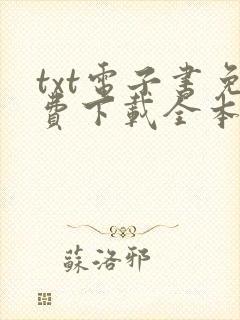 txt電子書免
費下載全本
蘇洛邪